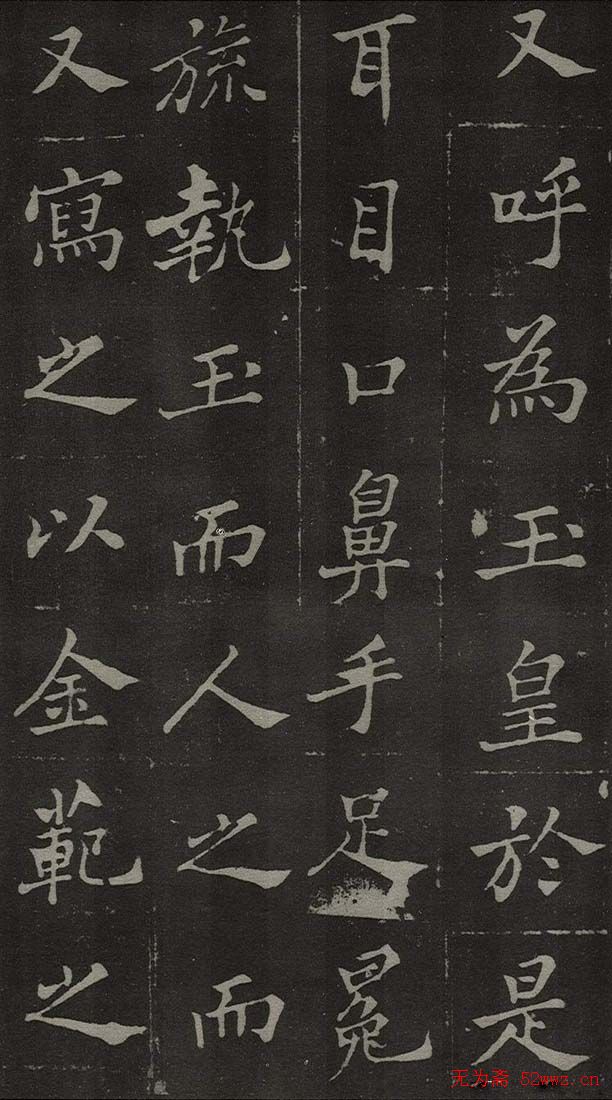 又呼為玉皇於是
耳目口鼻手足冕
旒執玉而人之而
又寫之以金範之
无为斋 52wwz.cn